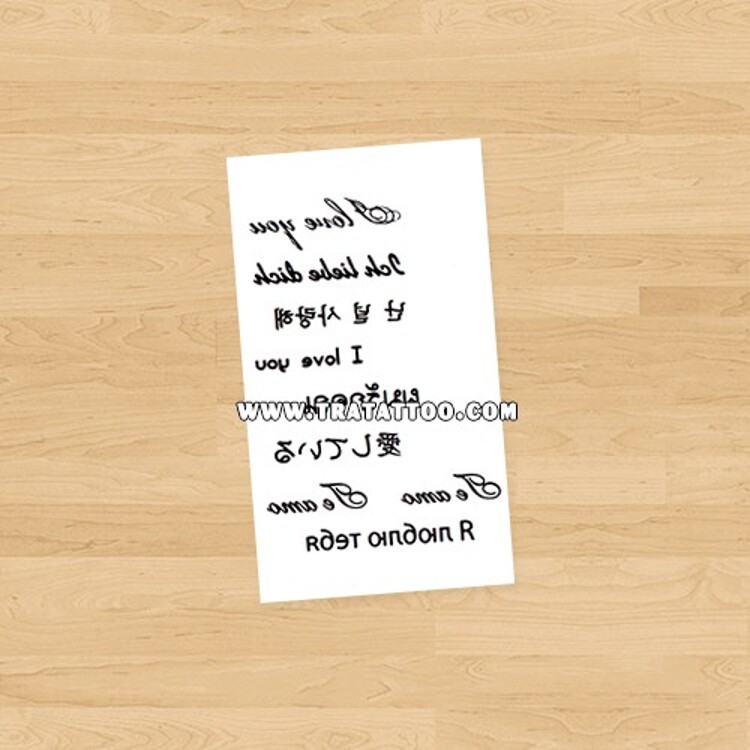 I love you
Ich liebe dich
난 널 사랑해
I love you
WWW.TRATATTOO.COM
愛している
Te amo Te amo
Я люблю тебя